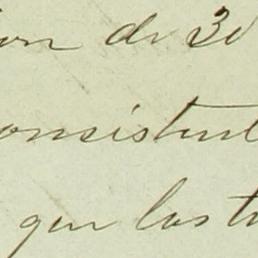 ion de 30
onsistent
que las t